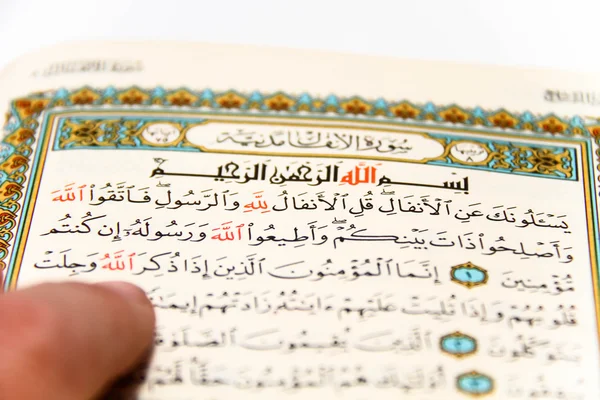 سورة الأنفال مدنية
ترتيبها ٨
بسم الله الرحمن الرحيم
يَسْـَٔلُونَكَ عَنِ ٱلْأَنفَالِ ۖ قُلِ ٱلْأَنفَالُ لِلَّهِ وَٱلرَّسُولِ ۖ فَٱتَّقُوا۟ ٱللَّهَ
وَأَصْلِحُوا۟ ذَاتَ بَيْنِكُمْ ۖ وَأَطِيعُوا۟ ٱللَّهَ وَرَسُولَهُۥٓ إِن كُنتُم
مُّؤْمِنِينَ ١ إِنَّمَا ٱلْمُؤْمِنُونَ ٱلَّذِينَ إِذَا ذُكِرَ ٱللَّهُ وَجِلَتْ
قُلُوبُهُمْ وَإِذَا تُلِيَتْ عَلَيْهِمْ ءَايَـٰتُهُۥ زَادَتْهُمْ إِيمَـٰنًا
يَتَوَكَّلُونَ ٢ ٱلَّذِينَ يُقِيمُونَ ٱلصَّلَوٰةَ
٣ أُو۟لَـٰٓئِكَ هُمُ ٱلْمُؤْمِنُونَ حَقًّا ۚ لَّهُمْ